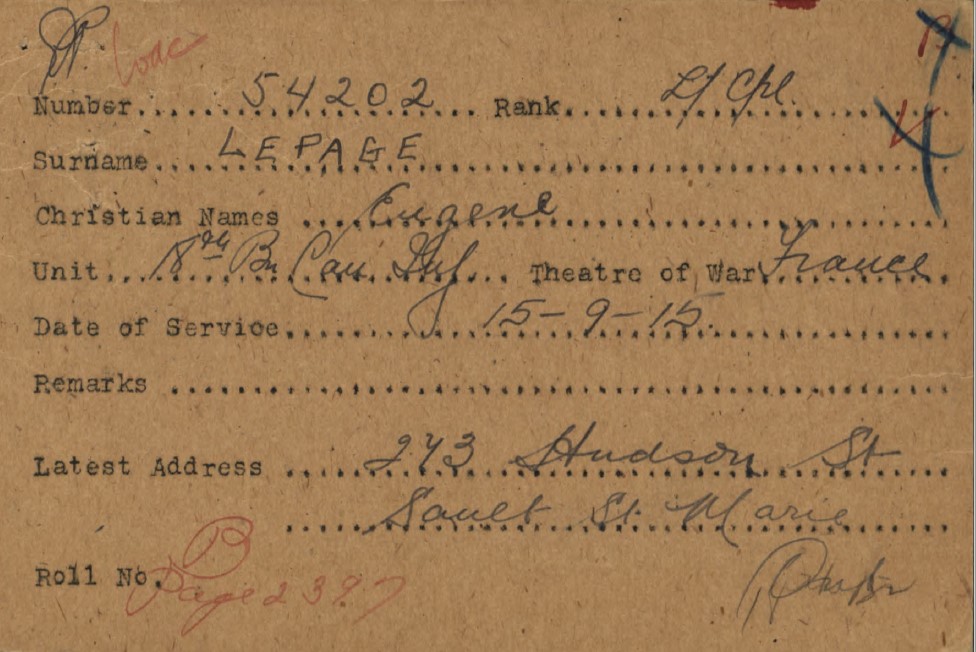 Number 54202 Rank L/Cpl.
Surname LEPAGE
Christian Names Eugene
Unit Bn Can Inf Theatre of War France
Date of Service 15-9-15.
Remarks
Latest Address 273 Hudson St
Sault St Marie
Roll No. B
Page 2397